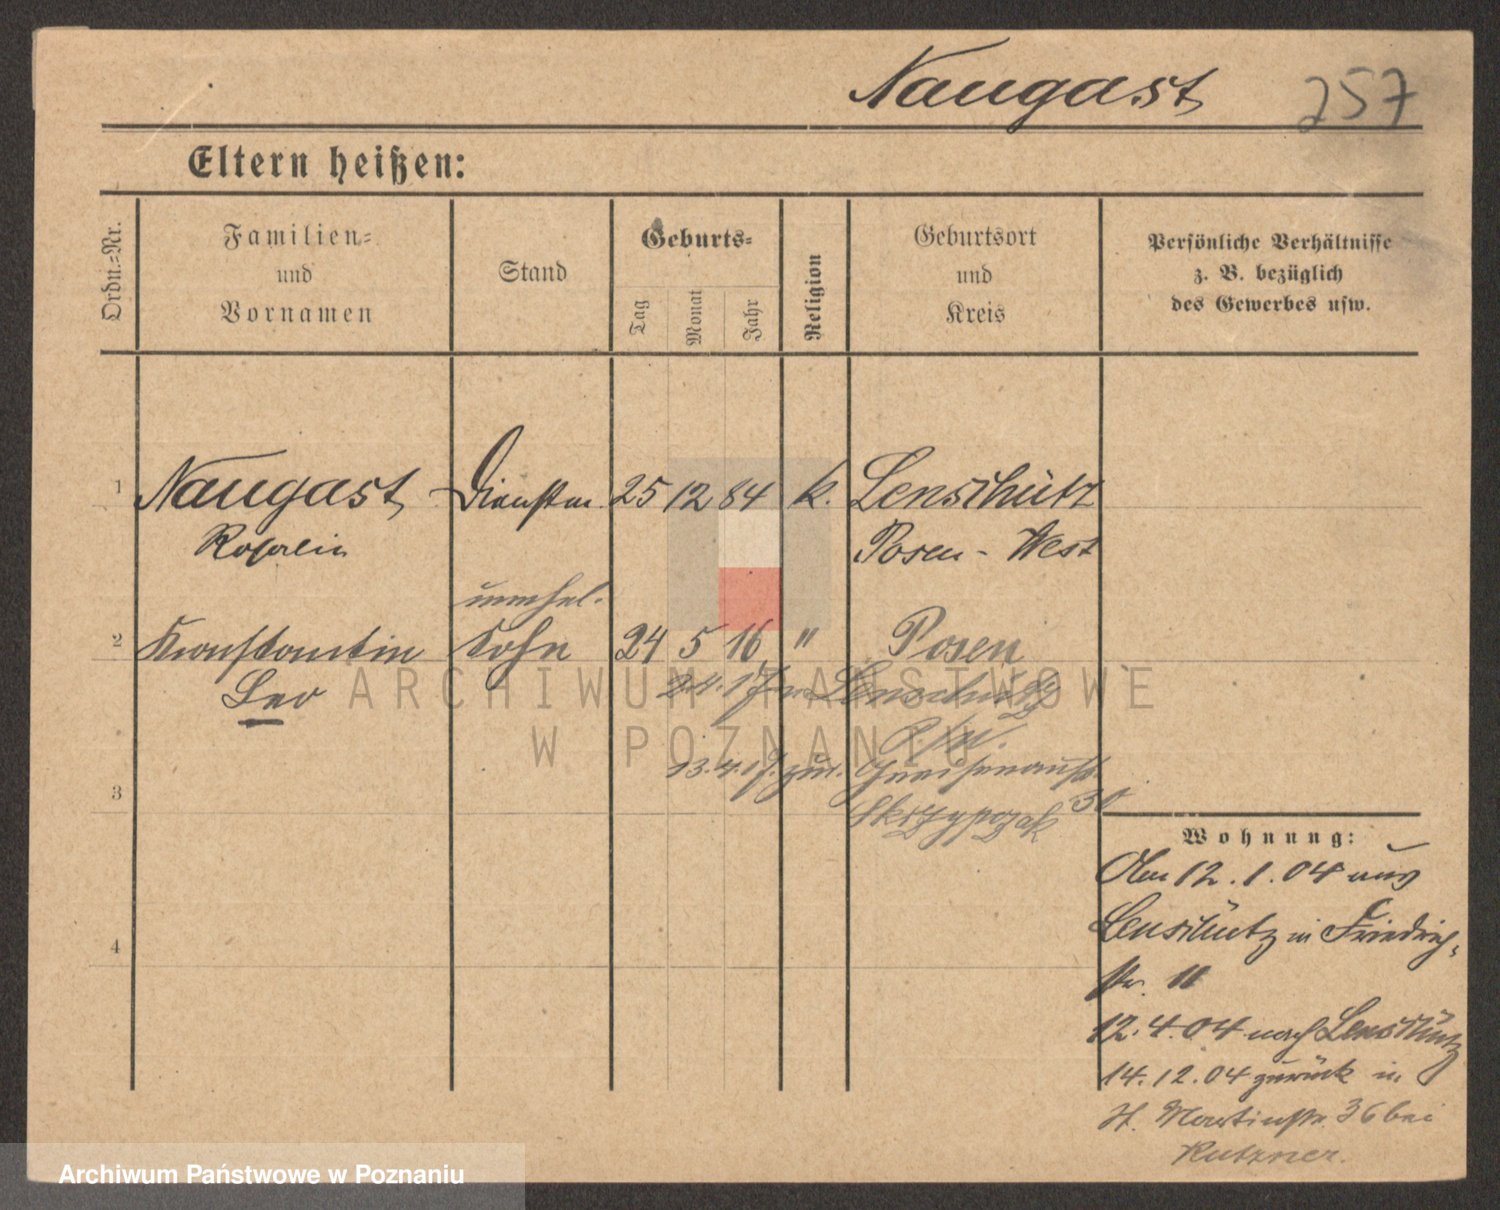 Naugast 257
Eltern heißen:
Ordn.-Nr.
Familien-
und
Vornamen
Stand
Geburts-
Tag
Monat
Jahr
Religion
Geburtsort
und
Kreis
Persönliche Verhältnisse
z. B. bezüglich
des Gewerbes usw.
1 Naugast Dienstm. 25 12 84 k. Lenschütz
Rosalie Posen - West
unehel.
2 Konstantin Sohn 24 5 16 " Posen
Leo
2.4.17 n. Lenschütz
P/W.
13.4.17. zur. Gneisenaustr.
30
Skrzypczak
3
4
Wohnung:
Am 12.1.04 aus
Lenschütz in Friedrich-
str. 11
12.4.04 nach Lenschütz
14.12.04 zurück in
St. Martinstr. 36 bei
Kutzner.
ARCHIWUM PAŃSTWOWE
W POZNANIU
Archiwum Państwowe w Poznaniu